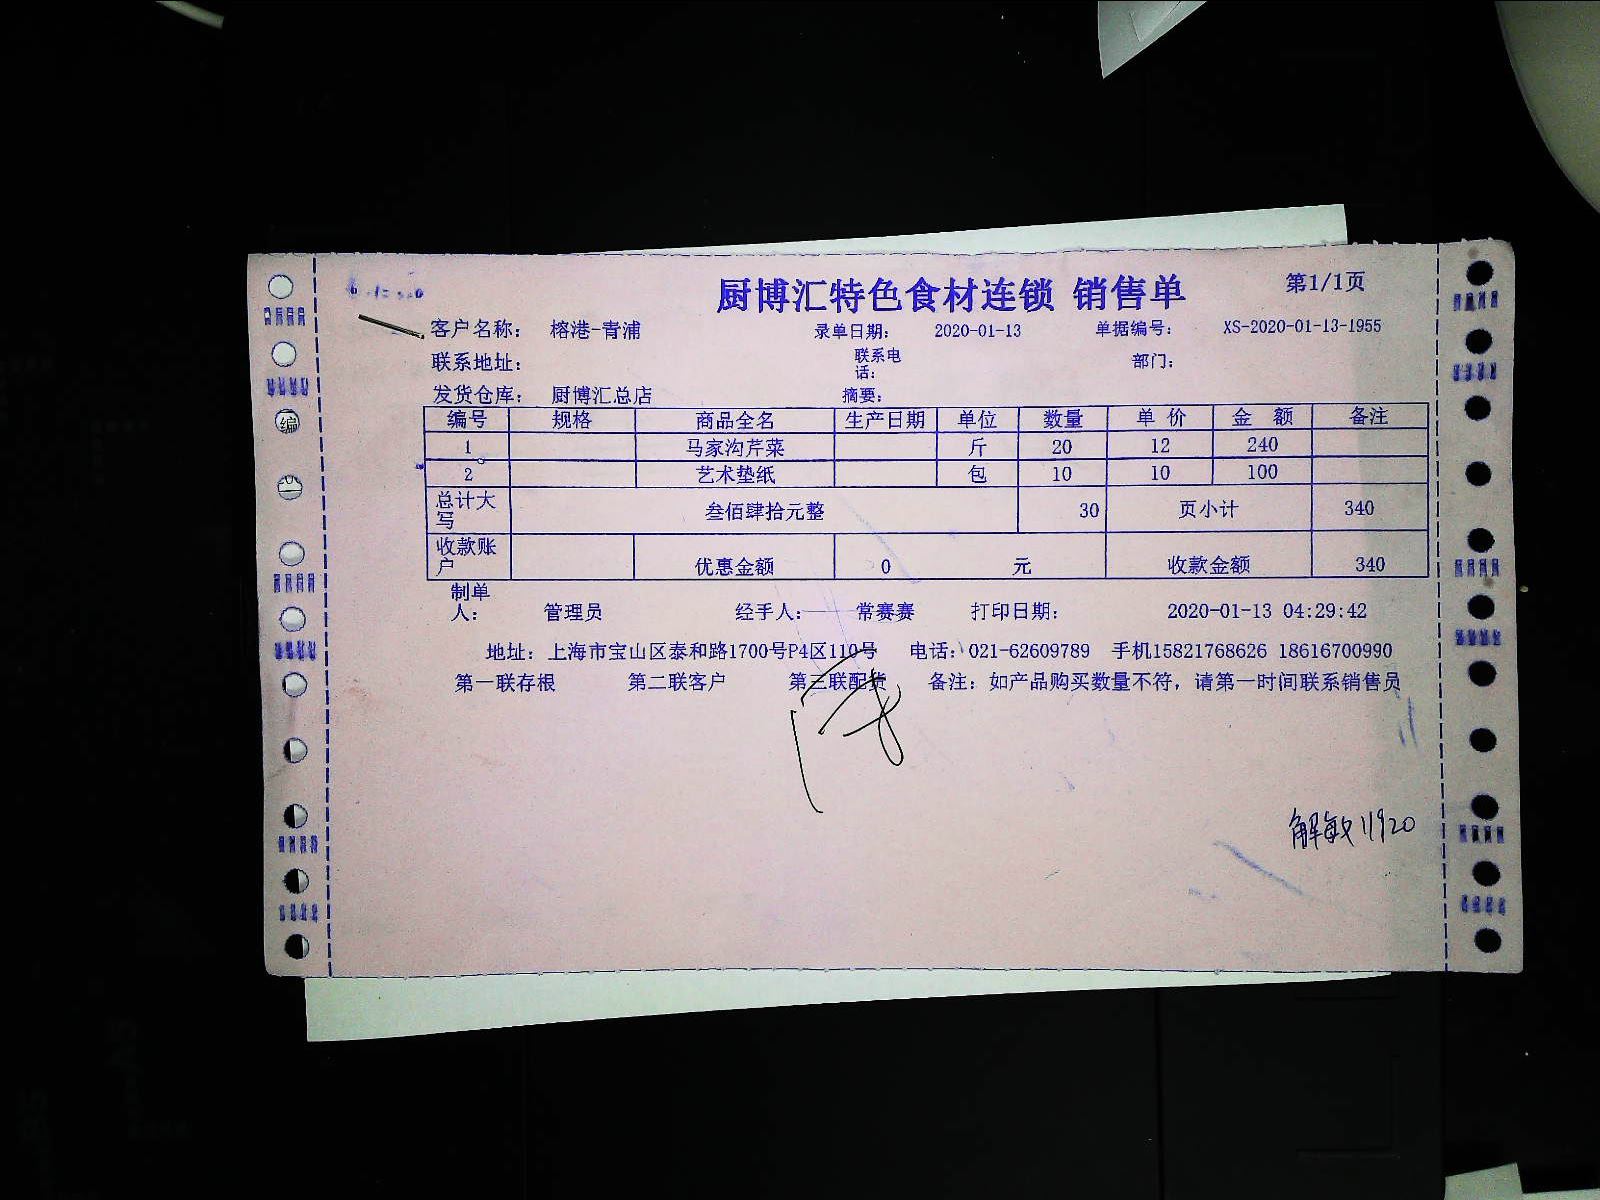 厨博汇特色食材连锁 销售单 第1/1页
客户名称: 榕港-青浦 录单日期: 2020-01-13 单据编号: XS-2020-01-13-1955
联系地址: 联系电话: 部门:
发货仓库: 厨博汇总店 摘要:
编号 规格 商品全名 生产日期 单位 数量 单价 金额 备注
1 马家沟芹菜 斤 20 12 240
2 艺术垫纸 包 10 10 100
总计大写 叁佰肆拾元整 30 页小计 340
收款账户 优惠金额 0 元 收款金额 340
制单人: 管理员 经手人: 常赛赛 打印日期: 2020-01-13 04:29:42
地址: 上海市宝山区泰和路1700号P4区110号 电话: 021-62609789 手机15821768626 18616700990
第一联存根 第二联客户 第三联配货 备注: 如产品购买数量不符, 请第一时间联系销售员
解敏 11920